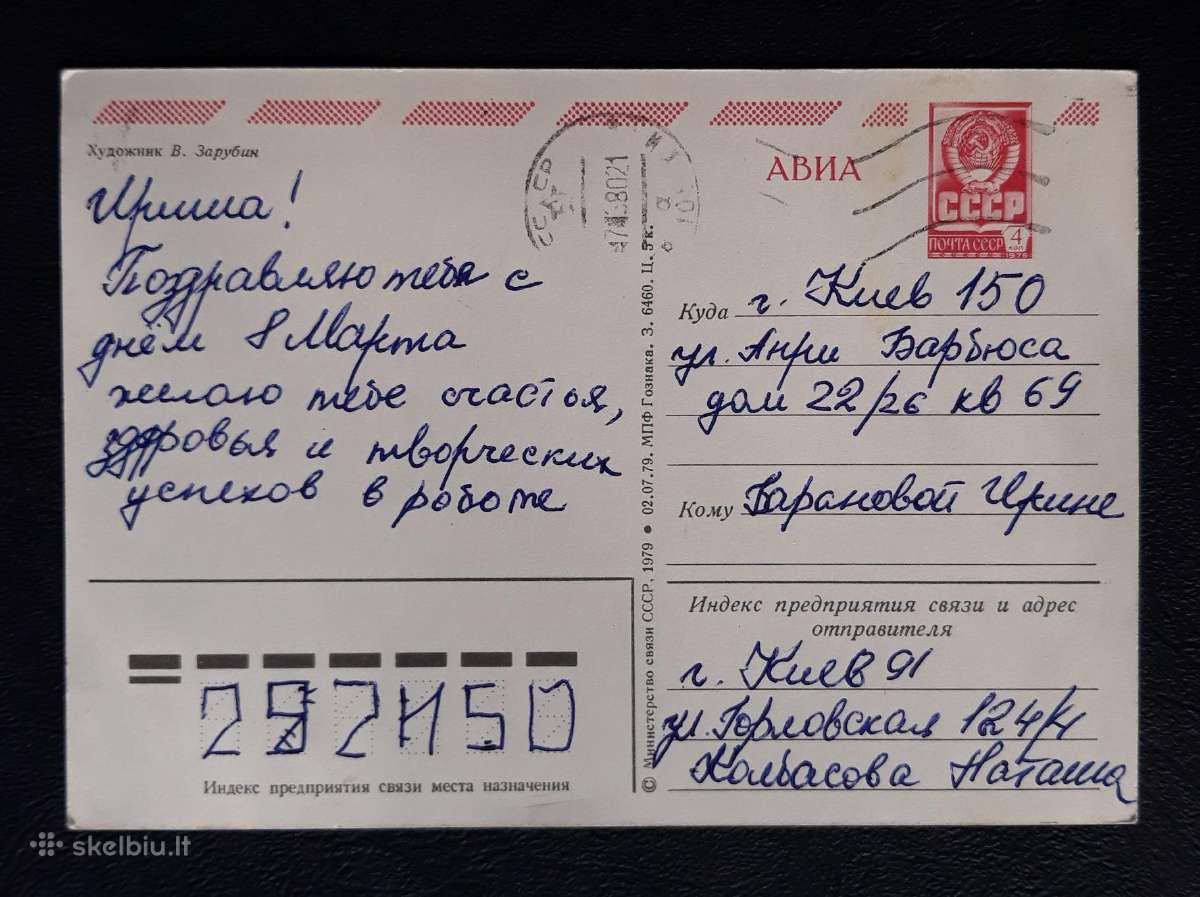 Художник В. Зарубин
АВИА
СССР
ПОЧТА СССР
4
КОП
1978
Ирина!
Поздравляю тебя с
днём 8 Марта
желаю тебе счастья,
здоровья и творческих
успехов в роботе
Куда г. Киев 150
ул. Анри Барбюса
дом 22/26 кв 69
Кому Барановой Ирине
Индекс предприятия связи и адрес
отправителя
г. Киев 91
ул. Горловская 124/4
Колбасова Наташа
Индекс предприятия связи места назначения
© Министерство связи СССР, 1979 • 02.07.79. МПФ Гознака. З. 6460. Ц. 5 к.
skelbiu.lt